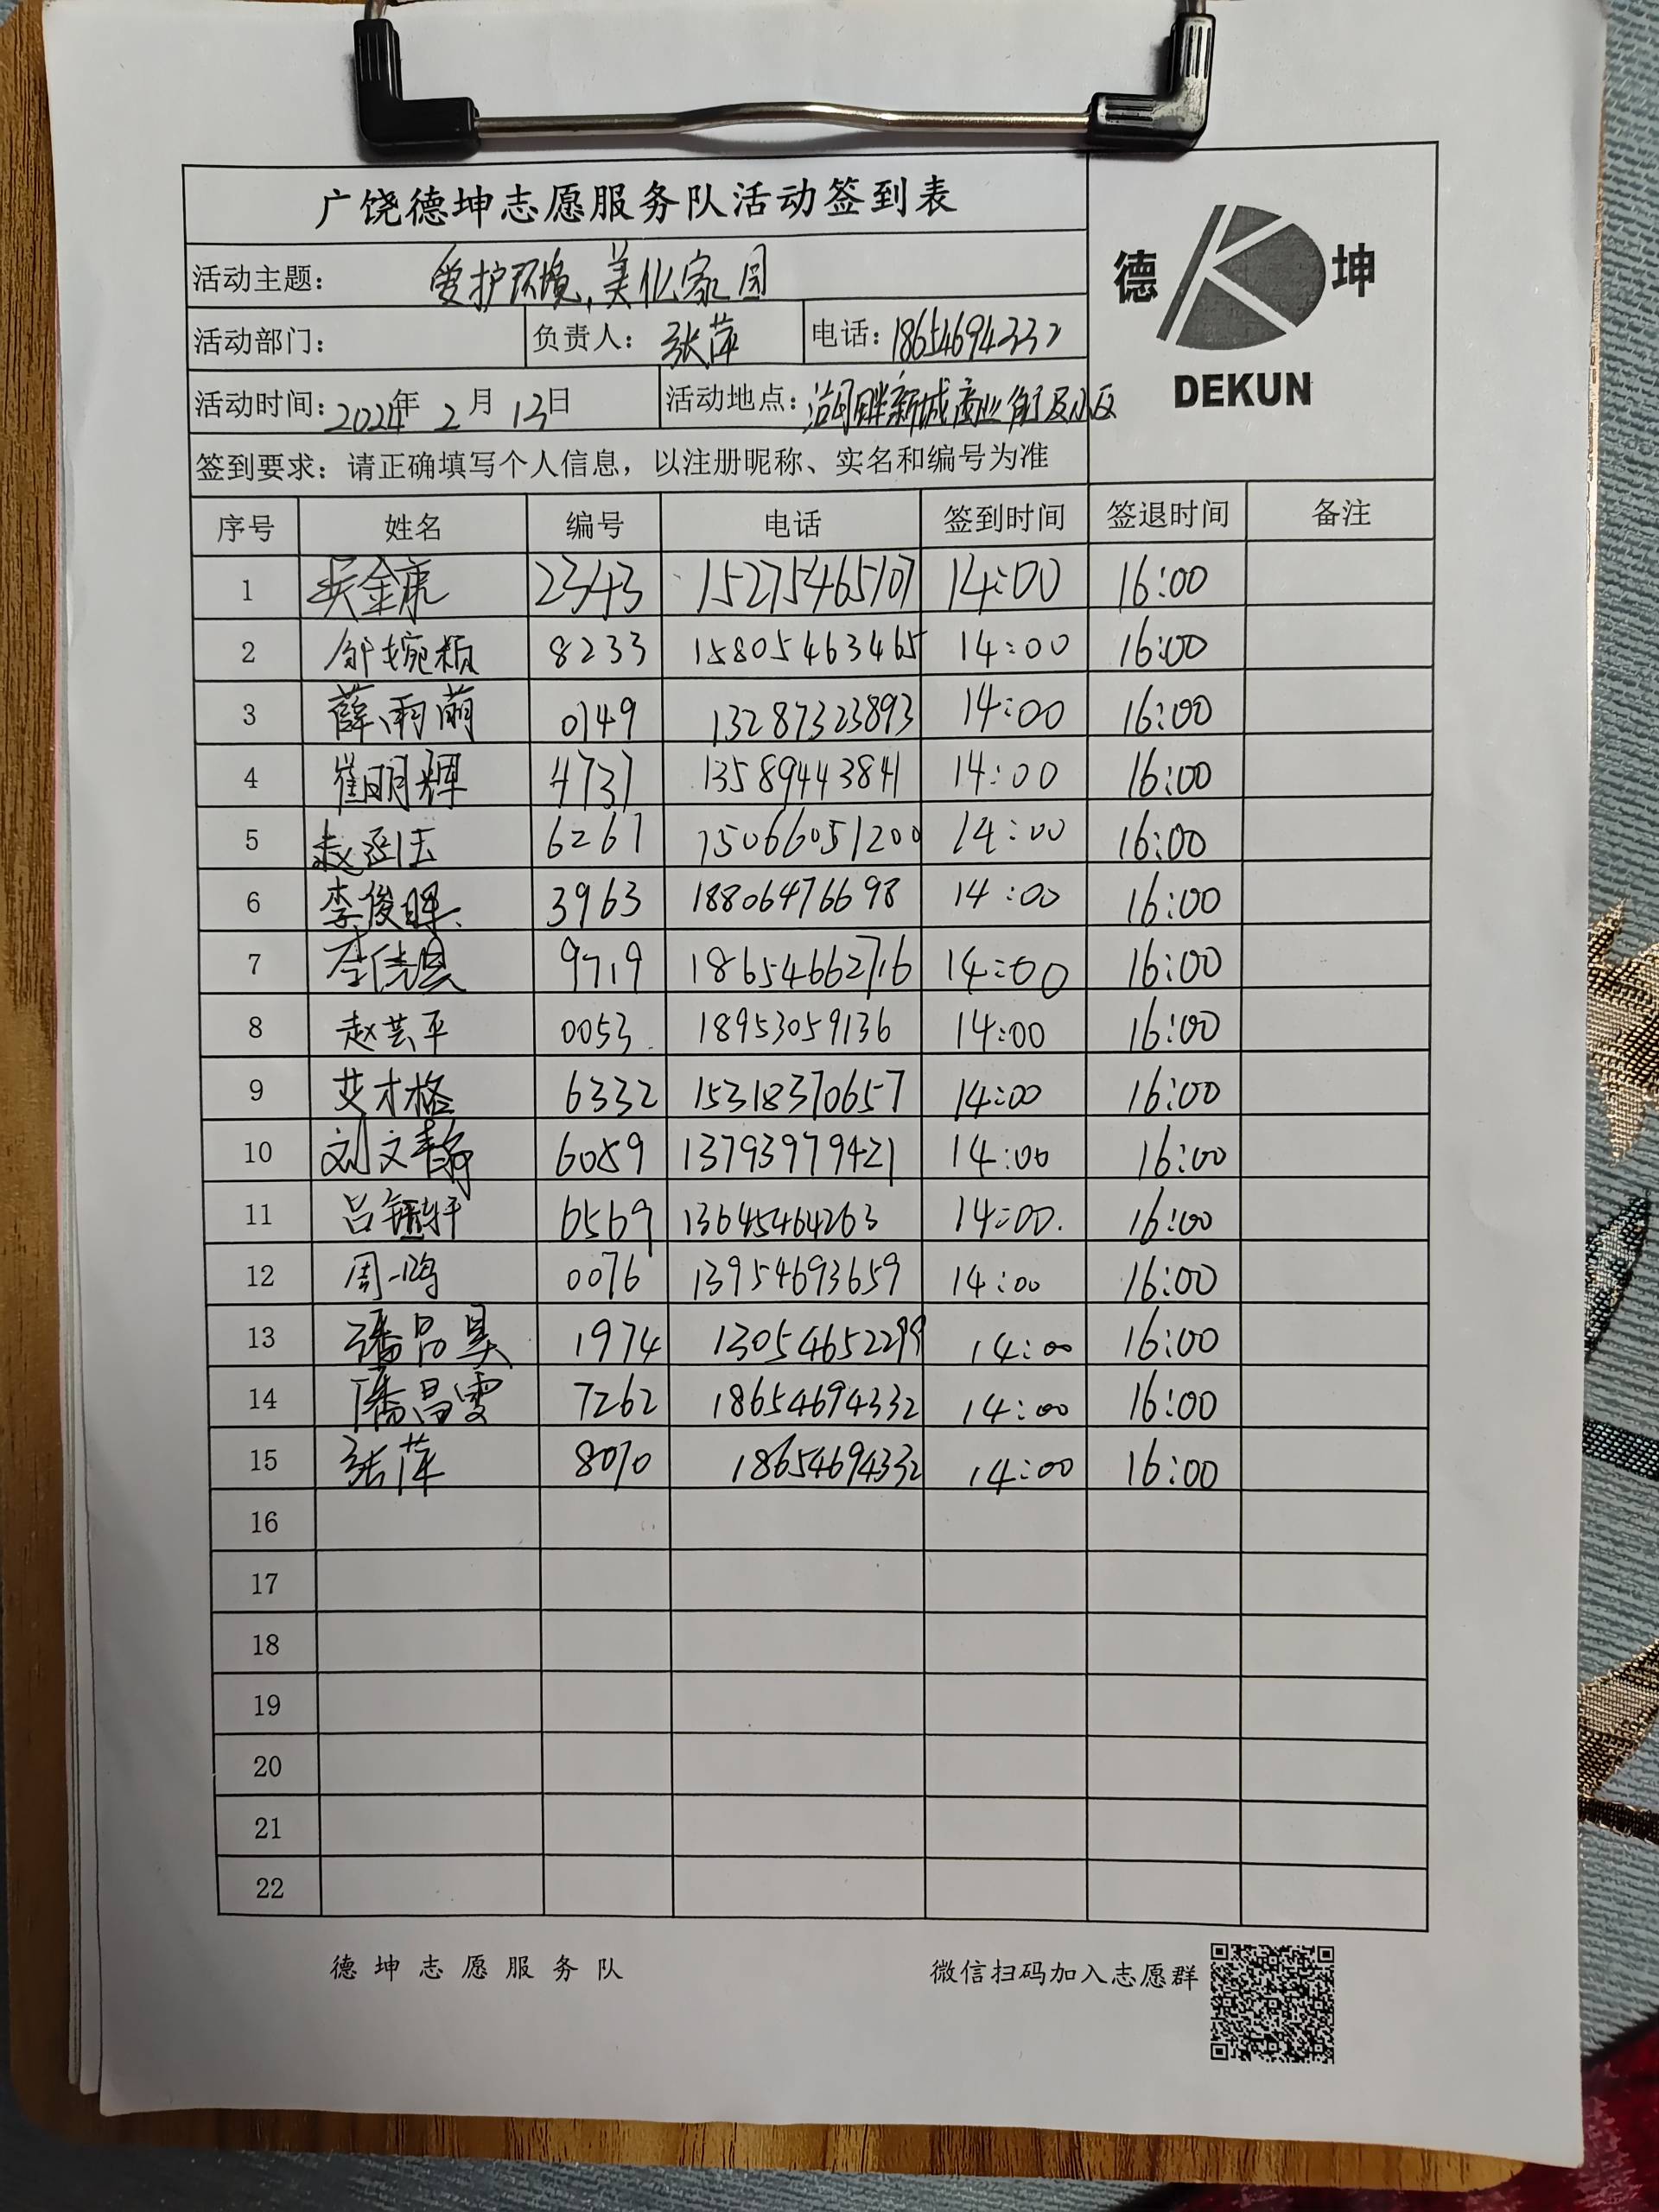 广饶德坤志愿服务队活动签到表
德 坤
DEKUN
活动主题: 爱护环境,美化家园
活动部门: 负责人: 张萍 电话: 18654694332
活动时间: 2024年 2 月 13日 活动地点: 新城商业街及小区
签到要求: 请正确填写个人信息, 以注册昵称、实名和编号为准
序号 姓名 编号 电话 签到时间 签退时间 备注
1 吴金虎 2343 15275465107 14:00 16:00
2 邹婉颖 8233 15805463465 14:00 16:00
3 薛雨萌 0149 13287323893 14:00 16:00
4 崔明辉 4737 13589443841 14:00 16:00
5 赵 6267 15066051200 14:00 16:00
6 李俊晖 3963 18806476698 14:00 16:00
7 9719 18654662716 14:00 16:00
8 赵芸平 0053 18953059136 14:00 16:00
9 艾才格 6332 15318370657 14:00 16:00
10 刘文静 6059 13793979421 14:00 16:00
11 吕 轩 6569 13645464263 14:00. 16:00
12 周一鸣 0076 13954693659 14:00 16:00
13 潘昌昊 1974 13054652299 14:00 16:00
14 潘昌雯 7262 18654694332 14:00 16:00
15 张萍 8070 18654694332 14:00 16:00
16
17
18
19
20
21
22
德坤志愿服务队 微信扫码加入志愿群